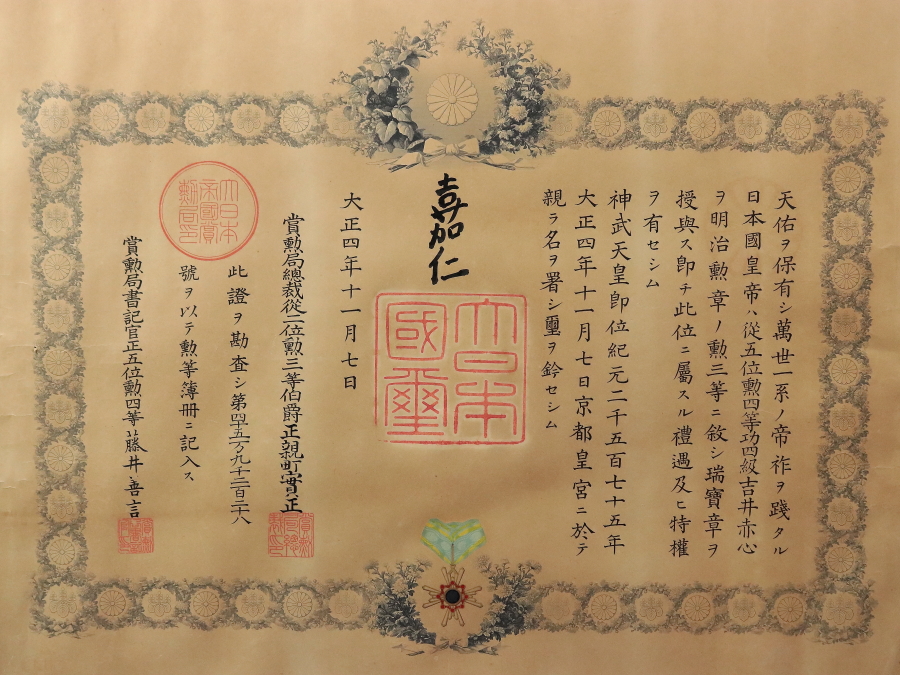 天佑ヲ保有シ萬世一系ノ帝祚ヲ踐タル
日本國皇帝ハ從五位勲四等功四級吉井赤心
ヲ明治勲章ノ勲三等ニ敘シ瑞寶章ヲ
授與ス即チ此位ニ屬スル禮遇及ヒ特權
ヲ有セシム
神武天皇即位紀元二千五百七十五年
大正四年十一月七日京都皇宮ニ於テ
親ラ名ヲ署シ璽ヲ鈐セシム
嘉仁
大日本
國璽
大正四年十一月七日
賞勲局總裁從二位勲三等伯爵正親町實正
大日本
帝國賞
勲局印
此證ヲ勘査シ第四十五万九千二百二十八
號ヲ以テ勲等簿冊ニ記入ス
賞勲局書記官正五位勲四等藤井善言